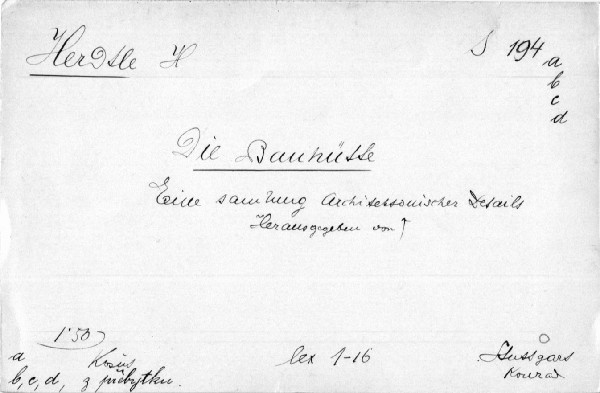 Herdtle H
S 194 a
b
c
d
Die Bauhütte
Eine samlung Architektonischer Details
Herausgegeben von ↑
1·50
a
b, c, d, z přebytku.
lex 1-16
Stuttgart
Konrad